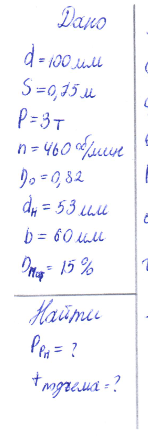 Дано
d = 100 мм
S = 0,75 м
P = 3 т
n = 460 об/мин
η₀ = 0,82
dн = 53 мм
b = 60 мм
= 15 %
Найти
Pрн = ?
t подъема = ?